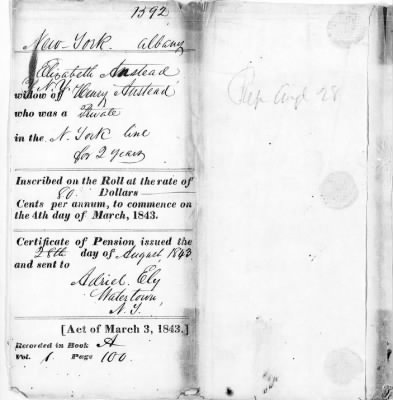 1592
New-York Albany
Elizabeth Anstead
N.Y.
widow of Henry Anstead
who was a Private
in the N. York line
for 2 years
Inscribed on the Roll at the rate of
80 Dollars
Cents per annum, to commence on
the 4th day of March, 1843.
Certificate of Pension issued the
28th day of August, 1843
and sent to
Adriel Ely
Watertown,
N.Y.
[Act of March 3, 1843.]
Recorded in Book A
Vol. 1 Page 100.
28